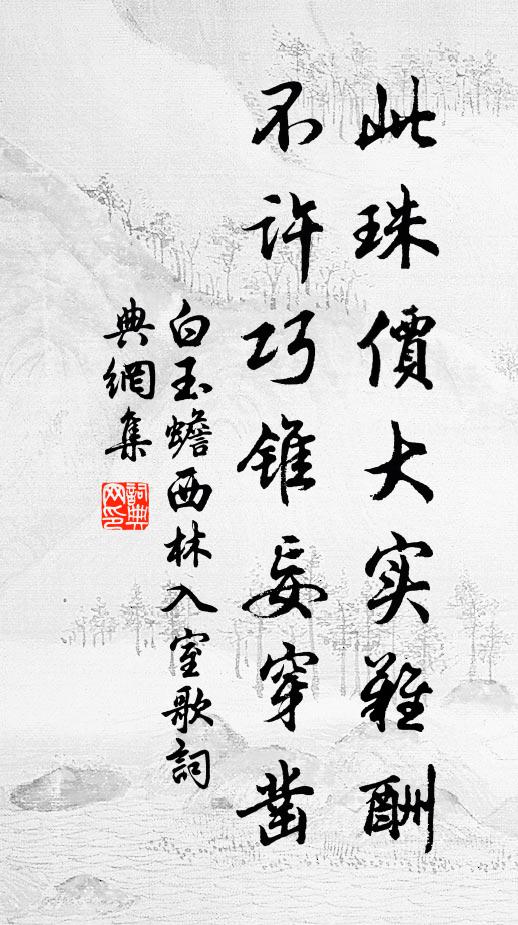 此珠價大实難酬
不许巧锥妄穿凿
白玉蟾西林入室歌詞
典網集
詞典网印